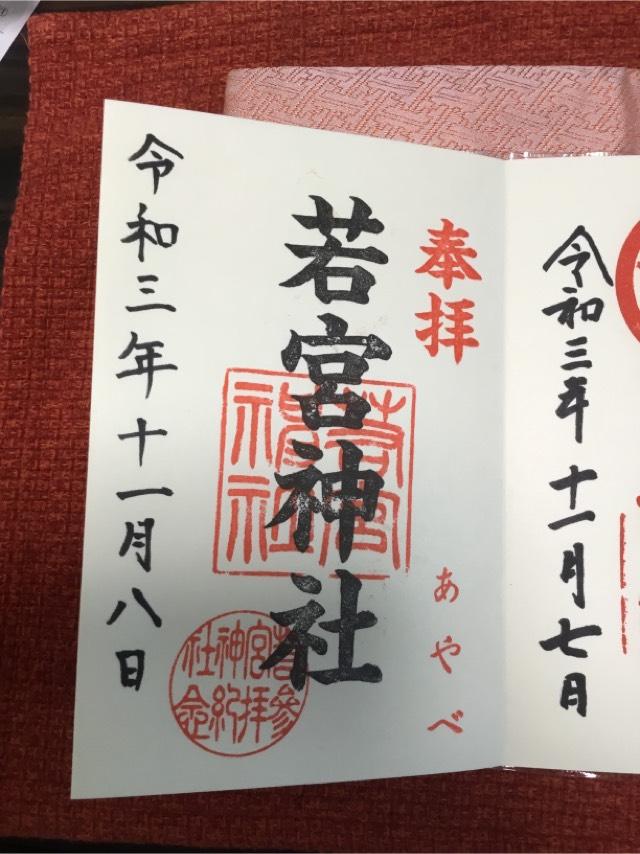 令和三年十一月七日
奉拝
あやべ
若宮神社
若宮
神社
参拝紀念
令和三年十一月八日